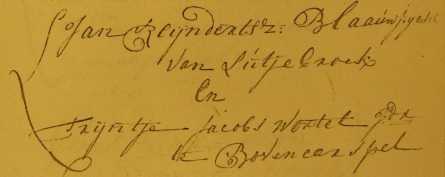 Jan Reijndertsz: Blaauwspeck
van Lútjebroek
En
Trijntje Jacobs Wortel gdr
te Bovencarspel